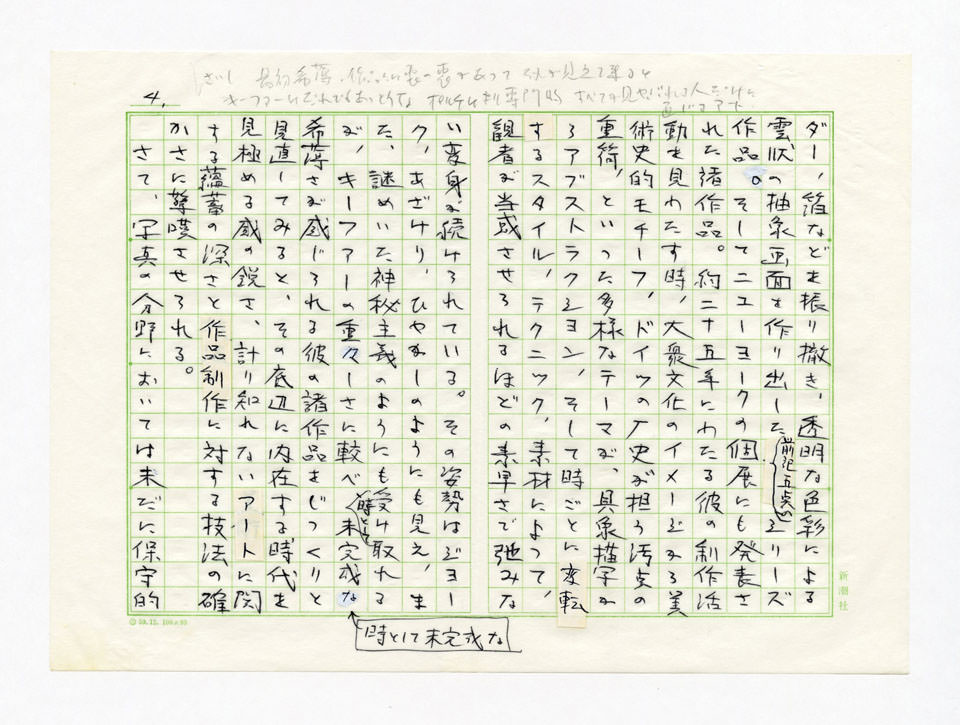 4.
ダー、箔などを振り撤き、透明な色彩による
雲状の抽象画面を作り出した
前記五点の
シリーズ
作品。そしてニューヨークの個展にも発表さ
れた諸作品。約二十五年にわたる彼の制作活
動を見わたす時、大衆文化のイメージから美
術史的モチーフ、ドイツの歴史が担う汚点の
重荷、といった多様なテーマが、具象描写か
らアブストラクション、そして時ごとに変転
するスタイル、テクニック、素材によって、
観者が当惑させられるほどの素早さで弛みな
い変身が続けられている。その姿勢はジョー
ク、あざけり、ひやかしのようにも見え、ま
た、謎めいた神秘主義のようにも受け取れる
が、キーファーの重々しさに較べ
時として
未完成な
希薄さが感じられる彼の諸作品をじっくりと
見直してみると、その底辺に内在する時代を
見極める感の鋭さ、計り知れないアートに関
する蘊蓄の深さと作品制作に対する技法の確
かさに驚嘆させられる。
さて、写真の分野においては未だに保守的
時として未完成な
新潮社